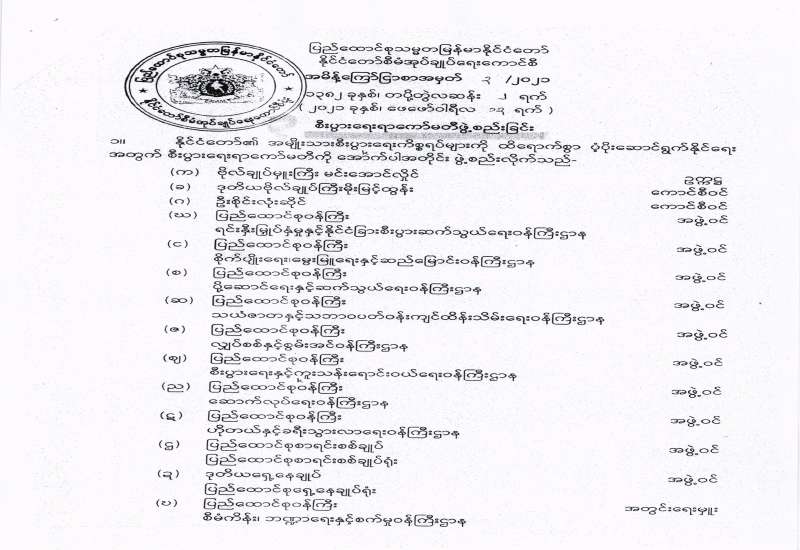 ပြည်ထောင်စုသမ္မတမြန်မာနိုင်ငံတော်
နိုင်ငံတော်စီမံအုပ်ချုပ်ရေးကောင်စီ
အမိန့်ကြော်ငြာစာအမှတ် ၃ /၂၀၂၁
၁၃၈၂ ခုနှစ်၊ တပို့တွဲလဆန်း ၂ ရက်
( ၂၀၂၁ ခုနှစ်၊ ဖေဖော်ဝါရီလ ရက် )
စီးပွားရေးရာကော်မတီဖွဲ့စည်းခြင်း
၁။ နိုင်ငံတော်၏ အမျိုးသားစီးပွားရေးကိစ္စရပ်များကို ထိရောက်စွာ ပံ့ပိုးဆောင်ရွက်နိုင်ရေး
အတွက် စီးပွားရေးရာကော်မတီကို အောက်ပါအတိုင်း ဖွဲ့စည်းလိုက်သည်-
(က) ဗိုလ်ချုပ်မှူးကြီး မင်းအောင်လှိုင် ဥက္ကဋ္ဌ
(ခ) ဒုတိယဗိုလ်ချုပ်ကြီးမိုးမြင့်ထွန်း ကောင်စီဝင်
(ဂ) ဦးစိုင်းလုံးဆိုင် ကောင်စီဝင်
(ဃ) ပြည်ထောင်စုဝန်ကြီး အဖွဲ့ဝင်
ရင်းနှီးမြှုပ်နှံမှုနှင့်နိုင်ငံခြားစီးပွားဆက်သွယ်ရေးဝန်ကြီးဌာန
(င) ပြည်ထောင်စုဝန်ကြီး အဖွဲ့ဝင်
စိုက်ပျိုးရေး၊မွေးမြူရေးနှင့်ဆည်မြောင်းဝန်ကြီးဌာန
(စ) ပြည်ထောင်စုဝန်ကြီး အဖွဲ့ဝင်
ပို့ဆောင်ရေးနှင့်ဆက်သွယ်ရေးဝန်ကြီးဌာန
(ဆ) ပြည်ထောင်စုဝန်ကြီး အဖွဲ့ဝင်
သယံဇာတနှင့်သဘာဝပတ်ဝန်းကျင်ထိန်းသိမ်းရေးဝန်ကြီးဌာန
(ဇ) ပြည်ထောင်စုဝန်ကြီး အဖွဲ့ဝင်
လျှပ်စစ်နှင့်စွမ်းအင်ဝန်ကြီးဌာန
(ဈ) ပြည်ထောင်စုဝန်ကြီး အဖွဲ့ဝင်
စီးပွားရေးနှင့်ကူးသန်းရောင်းဝယ်ရေးဝန်ကြီးဌာန
(ည) ပြည်ထောင်စုဝန်ကြီး အဖွဲ့ဝင်
ဆောက်လုပ်ရေးဝန်ကြီးဌာန
(ဋ) ပြည်ထောင်စုဝန်ကြီး အဖွဲ့ဝင်
ဟိုတယ်နှင့်ခရီးသွားလာရေးဝန်ကြီးဌာန
(ဌ) ပြည်ထောင်စုစာရင်းစစ်ချုပ် အဖွဲ့ဝင်
ပြည်ထောင်စုစာရင်းစစ်ချုပ်ရုံး
(ဍ) ဒုတိယရှေ့နေချုပ် အဖွဲ့ဝင်
ပြည်ထောင်စုရှေ့နေချုပ်ရုံး
(ဎ) ပြည်ထောင်စုဝန်ကြီး အတွင်းရေးမှူး
စီမံကိန်း၊ ဘဏ္ဍာရေးနှင့်စက်မှုဝန်ကြီးဌာန
ပြည်ထောင်စုသမ္မတမြန်မာနိုင်ငံတော်
နိုင်ငံတော်စီမံအုပ်ချုပ်ရေးကောင်စီ